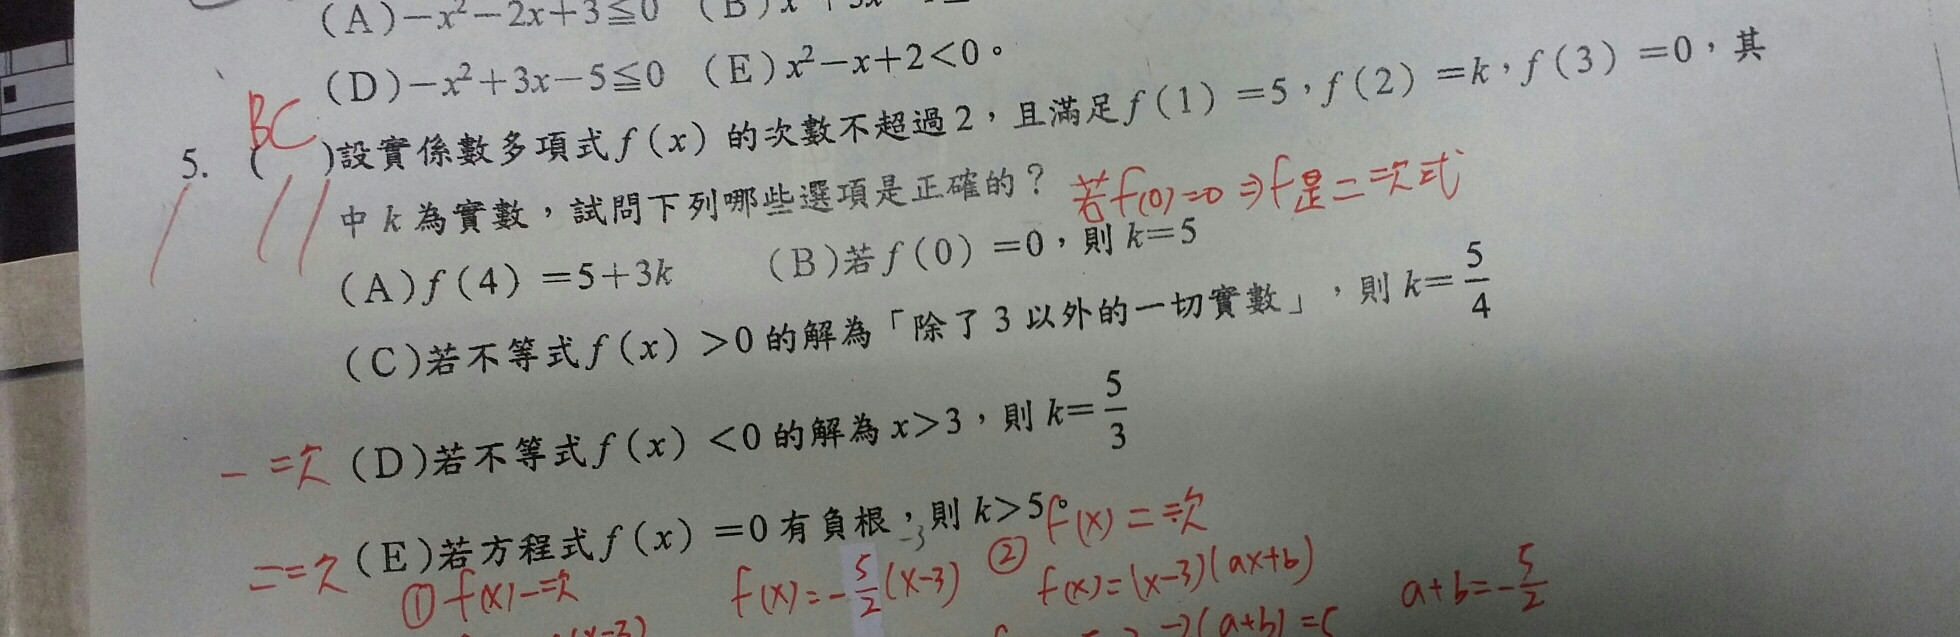 (A)−x²−2x+3≦0 (B)x
(D)−x²+3x−5≦0 (E)x²−x+2<0。
BC
5. ( )設實係數多項式f(x)的次數不超過2，且滿足f(1)=5，f(2)=k，f(3)=0，其
中k為實數，試問下列哪些選項是正確的？ 若f(0)=0⇒f是二次式
(A)f(4)=5+3k (B)若f(0)=0，則k=5
(C)若不等式f(x)>0的解為「除了3以外的一切實數」，則k=5/4
一次 (D)若不等式f(x)<0的解為x>3，則k=5/3
二次 (E)若方程式f(x)=0有負根，則k>5。 f(x)二次
① f(x)一次 f(x)=-5/2(x-3) ② f(x)=(x-3)(ax+b) a+b=-5/2
(x-3) (a+b)=5